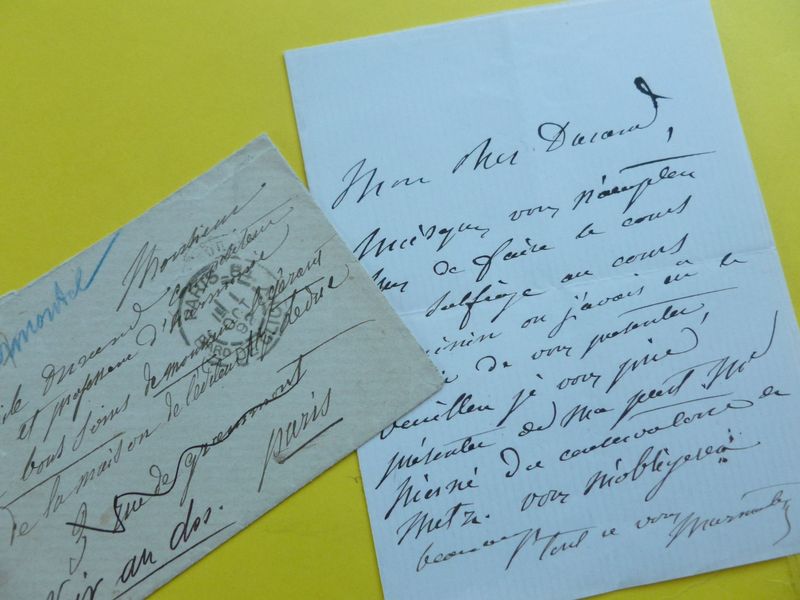 Mon cher Durand,
puisque vous n'acceptez
pas de faire le cours
solfège au cours
où j'avais eu le
de vous présenter,
veuillez je vous prie,
présenter de ma part Mr
Pierné du conservatoire de
Metz. vous m'obligerez
beaucoup tout à vous Marmontel
Marmontel
Monsieur
Emile Durand compositeur
et professeur d'harmonie
aux bons soins de monsieur le gérant
de la maison de l'éditeur Alph Leduc
3 rue de grammont
Paris
voir au dos.
PARIS
OCT